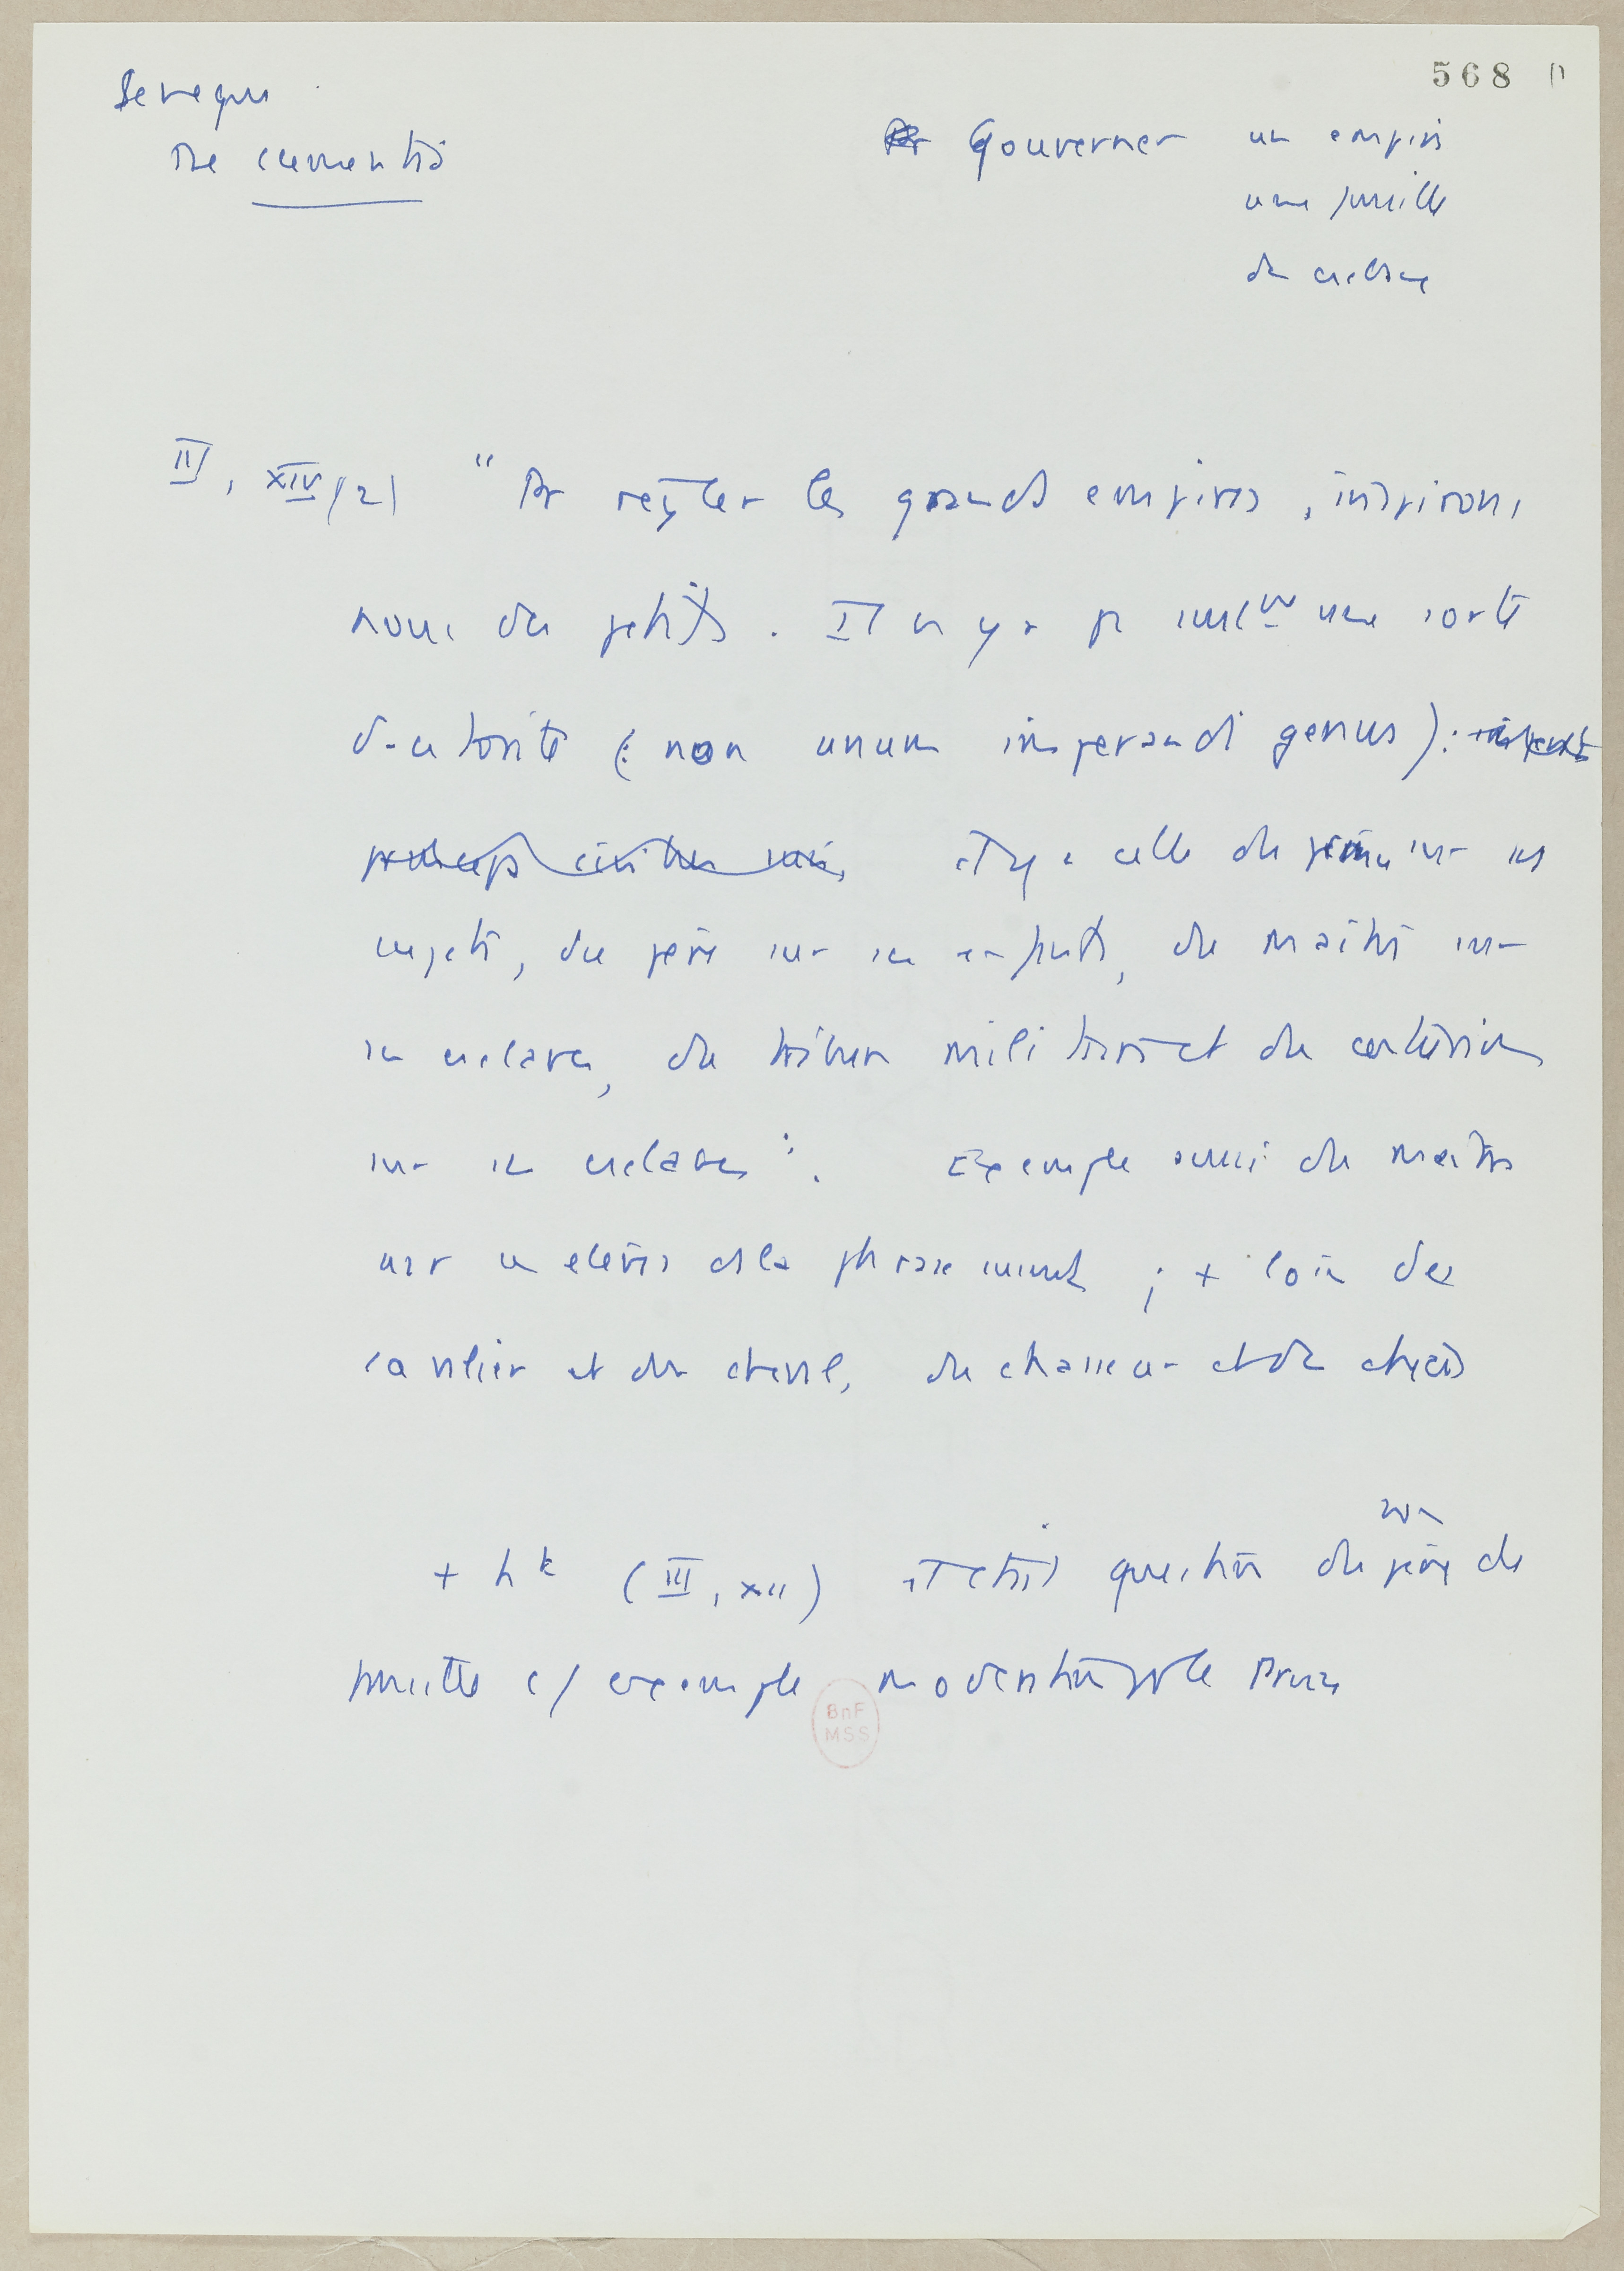 568 (1
Seneque
De clementia
Gouverner un empire
une famille
des esclaves
III, XIV (2) "Pr regler les grands empires, inspirons
nous des petits. Il n y a pas une sorte
d'autorité (: non unum imperandi genus) : imperat
princeps civibus suis, il y a celle du prince sur ses
sujets, du père sur ses enfants, du maître sur
ses esclaves, du tribun militaire et du centurion
sur ses esclaves". Exemple aussi du maître
sur ses élèves ds la phrase suivante ; + loin du
cavalier et du cheval, du chasseur et du chien
+ ht (III, XII) il était question du père de
famille c/ exemple
BnF
MSS